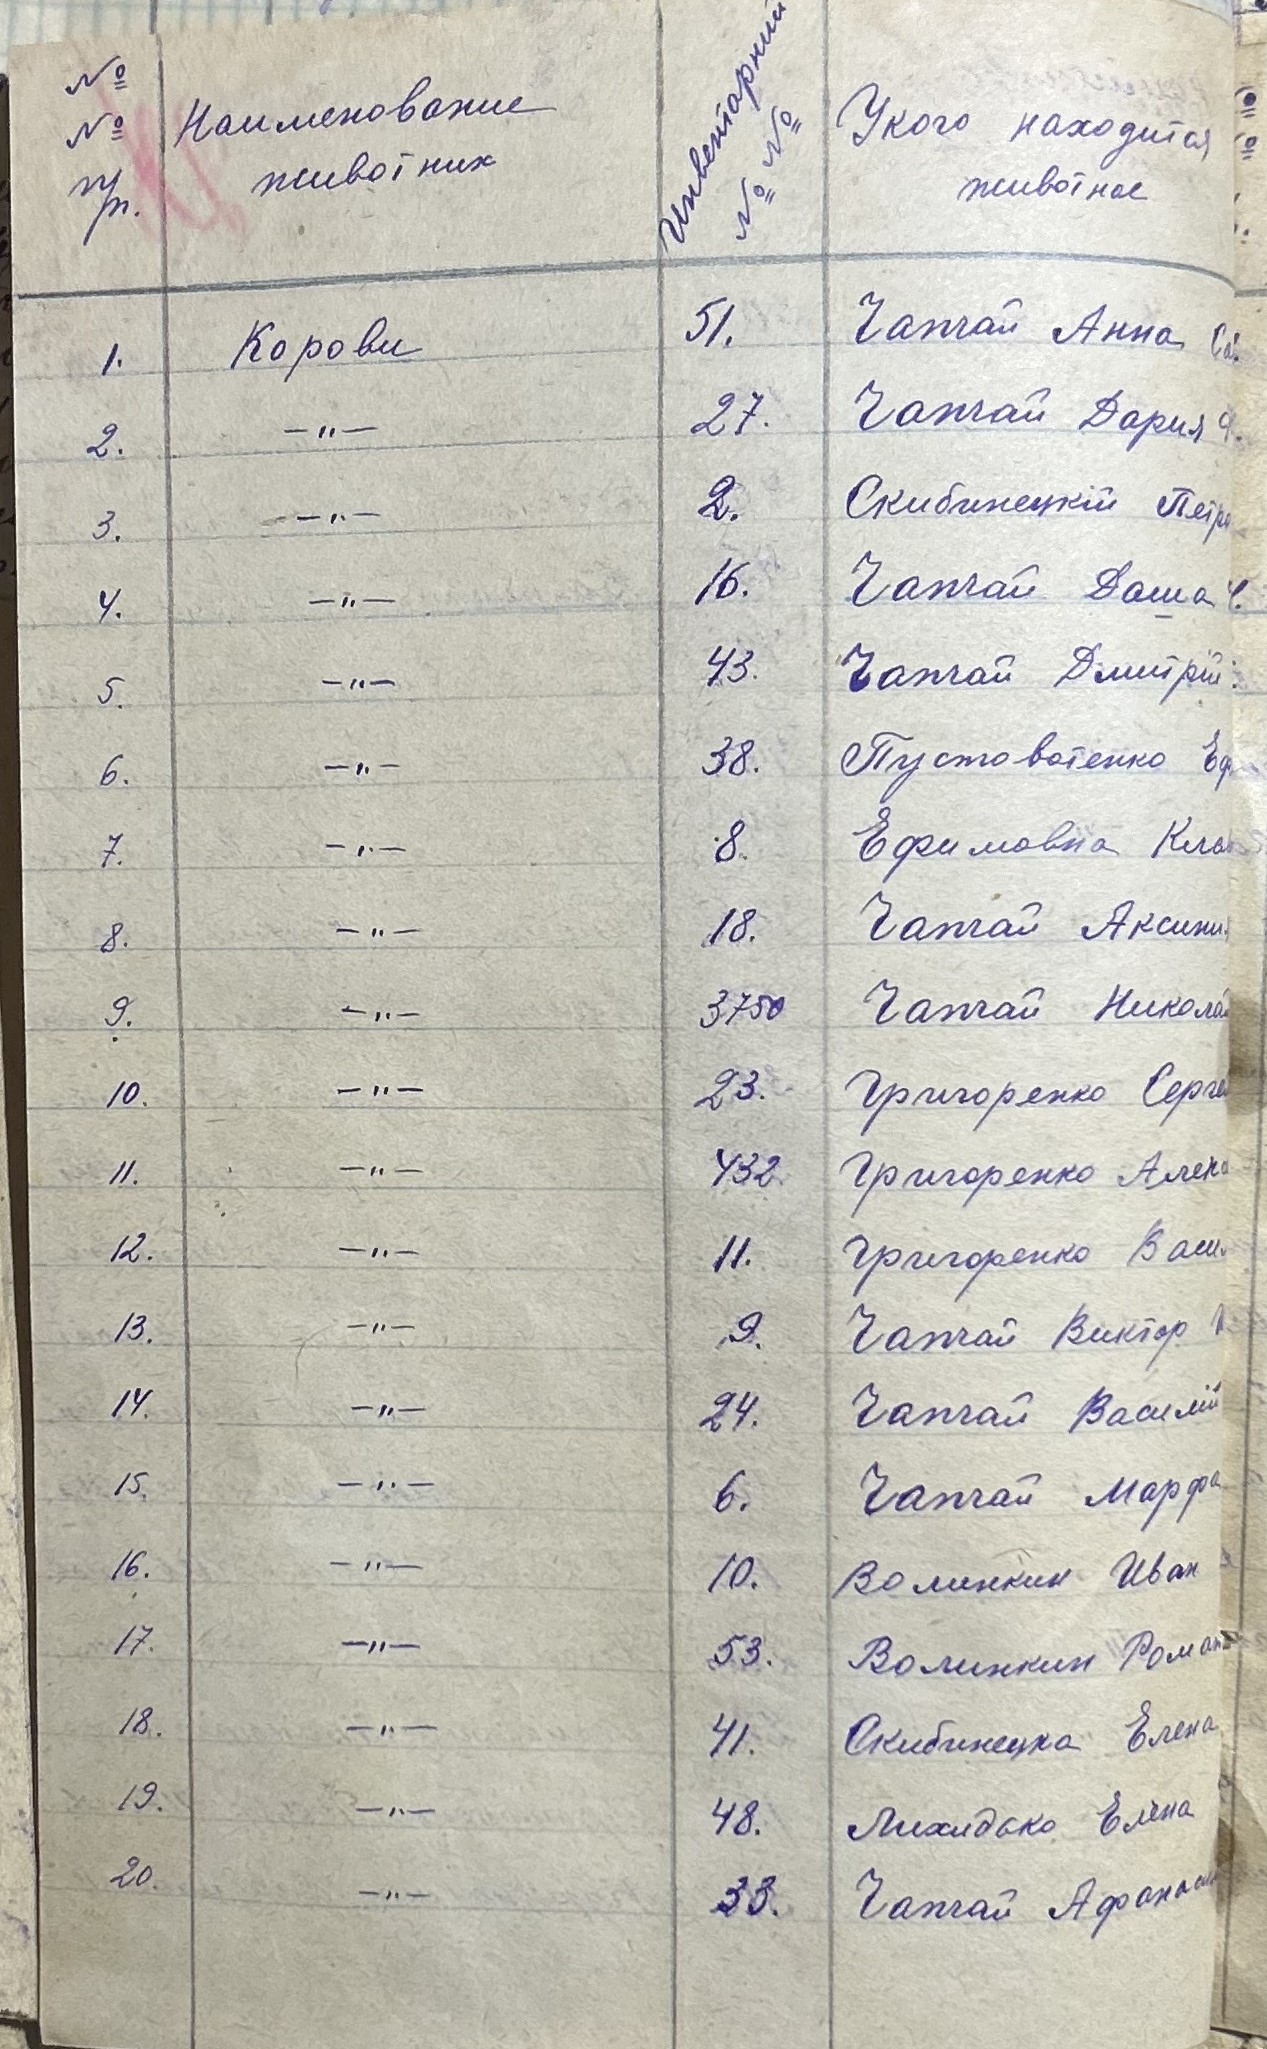 № № пп. Наименование животних Инвентарний № № У кого находится животное
1. Корови 51. Чапчай Анна
2. —"— 27. Чапчай Дария
3. —"— 2. Скибинецкій Петро
4. —"— 16. Чапчай Даша
5. —"— 43. Чапчай Дмитрій
6. —"— 38. Пустовотенко
7. —"— 8. Ефимовна
8. —"— 18. Чапчай Аксиния
9. —"— 3750 Чапчай Николай
10. —"— 23. Григоренко Сергей
11. —"— 432 Григоренко Алена
12. —"— 11. Григоренко Васи
13. —"— 9. Чапчай Виктор
14. —"— 24. Чапчай Василій
15. —"— 6. Чапчай Марфа
16. —"— 10. Волинкин Иван
17. —"— 53. Волинкин Роман
18. —"— 41. Скибинецка Елена
19. —"— 48. Лихидько Елена
20. —"— 33. Чапчай Афанас